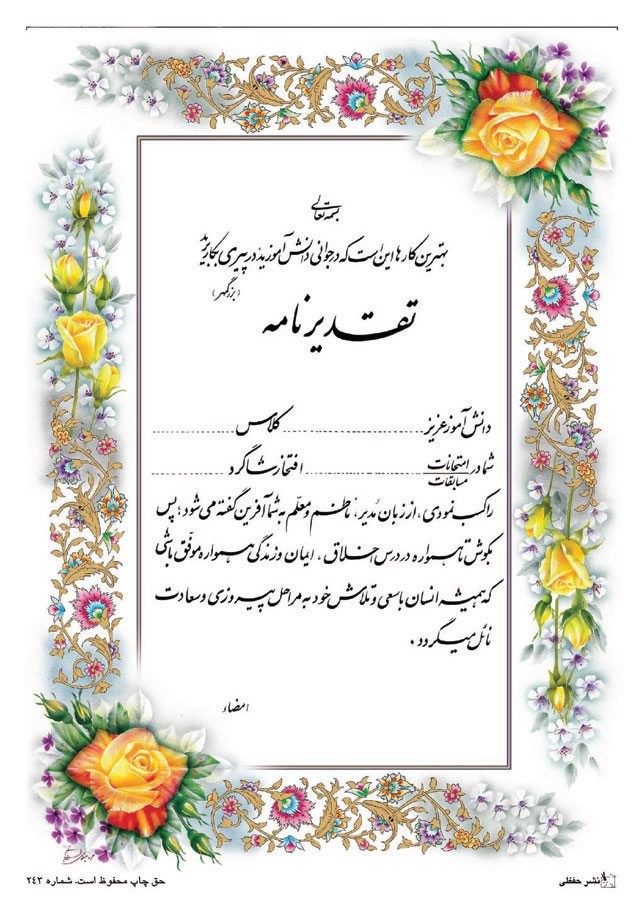 بسمه تعالی
بهترین کارها این است که در جوانی دانش آموزید در پیری بکار برید
(بزرگمهر)
تقدیرنامه
دانش آموز عزیز .................... کلاس ....................
شما در امتحانات .................... افتخار شاگرد ....................
مسابقات
را کسب نمودی، از زبان مدیر، ناظم و معلم به شما آفرین گفته می شود؛ پس
بکوش تا همواره در درس، اخلاق، ایمان و زندگی همواره موفق باشی
که همیشه انسان با سعی و تلاش خود به مراحل پیروزی و سعادت
نائل میگردد.
امضاء
نشر حفظی
حق چاپ محفوظ است. شماره ۲۴۳